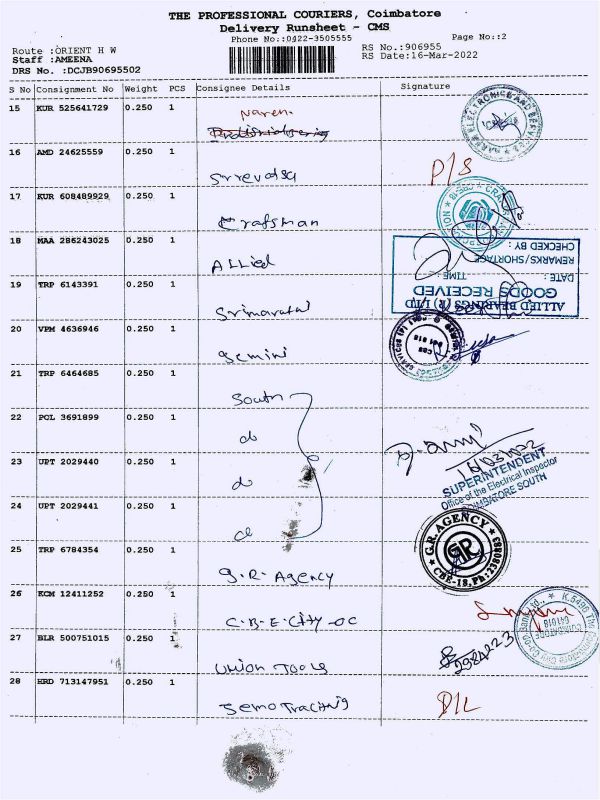 THE PROFESSIONAL COURIERS, Coimbatore
Delivery Runsheet - CMS
Phone No.:0422-3505555
Page No.:2
Route :ORIENT H W
Staff :AMEENA
DRS No. :DCJB90695502
RS No.:906955
RS Date:16-Mar-2022
S No Consignment No Weight PCS Consignee Details Signature
15 KUR 525641729 0.250 1 Naren
16 AMD 24625559 0.250 1 Srrevatsa
P/S
17 KUR 608489929 0.250 1 Crafsman
18 MAA 286243025 0.250 1 Allied
CHECKED BY :
REMARKS/SHORTAGE
TIME :
DATE :
GOODS RECEIVED
ALLIED BEARINGS (R) LTD
19 TRP 6143391 0.250 1
20 VPM 4636946 0.250 1 Gemini
21 TRP 6464685 0.250 1 South
22 PGL 3691899 0.250 1 do
23 UPT 2029440 0.250 1 do
16/03/2022
SUPERINTENDENT
Office of the Electrical Inspector
COIMBATORE SOUTH
24 UPT 2029441 0.250 1
25 TRP 6784354 0.250 1 G.R. Agency
G.R. AGENCY
GR
CBE-18,Ph:2380883
26 KCM 12411252 0.250 1 C.B.E-City-OC
27 BLR 500751015 0.250 1 Union Tools
28 HRD 713147951 0.250 1
D/L